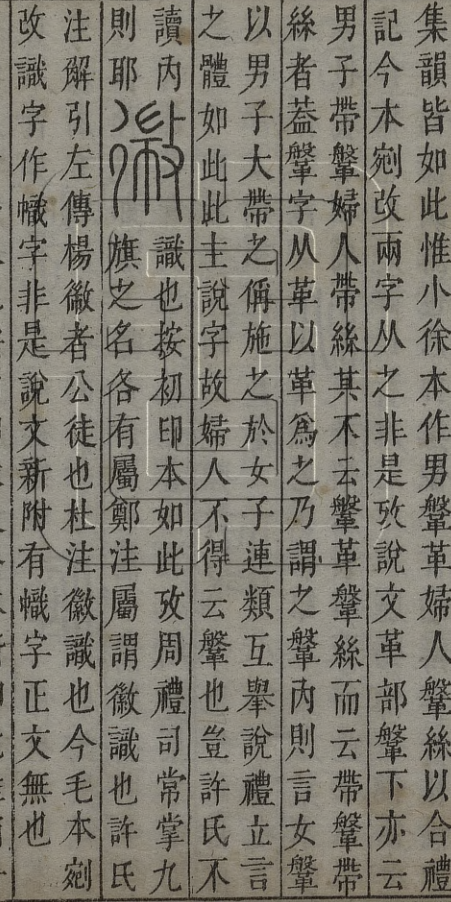 集韻皆如此惟小徐本作男鞶革婦人鞶絲以合禮
記今本剜改兩字从之非是攷說文革部鞶下亦云
男子帶鞶婦人帶絲其不云鞶革鞶絲而云帶鞶帶
絲者葢鞶字从革以革爲之乃謂之鞶內則言女鞶
以男子大帶之偁施之於女子連類互舉說禮立言
之體如此此主說字故婦人不得云鞶也豈許氏不
讀內則耶
識也按初印本如此攷周禮司常掌九
旗之名各有屬鄭注屬謂徽識也許氏
注解引左傳楊徽者公徒也杜注徽識也今毛本剜
改識字作幟字非是說文新附有幟字正文無也